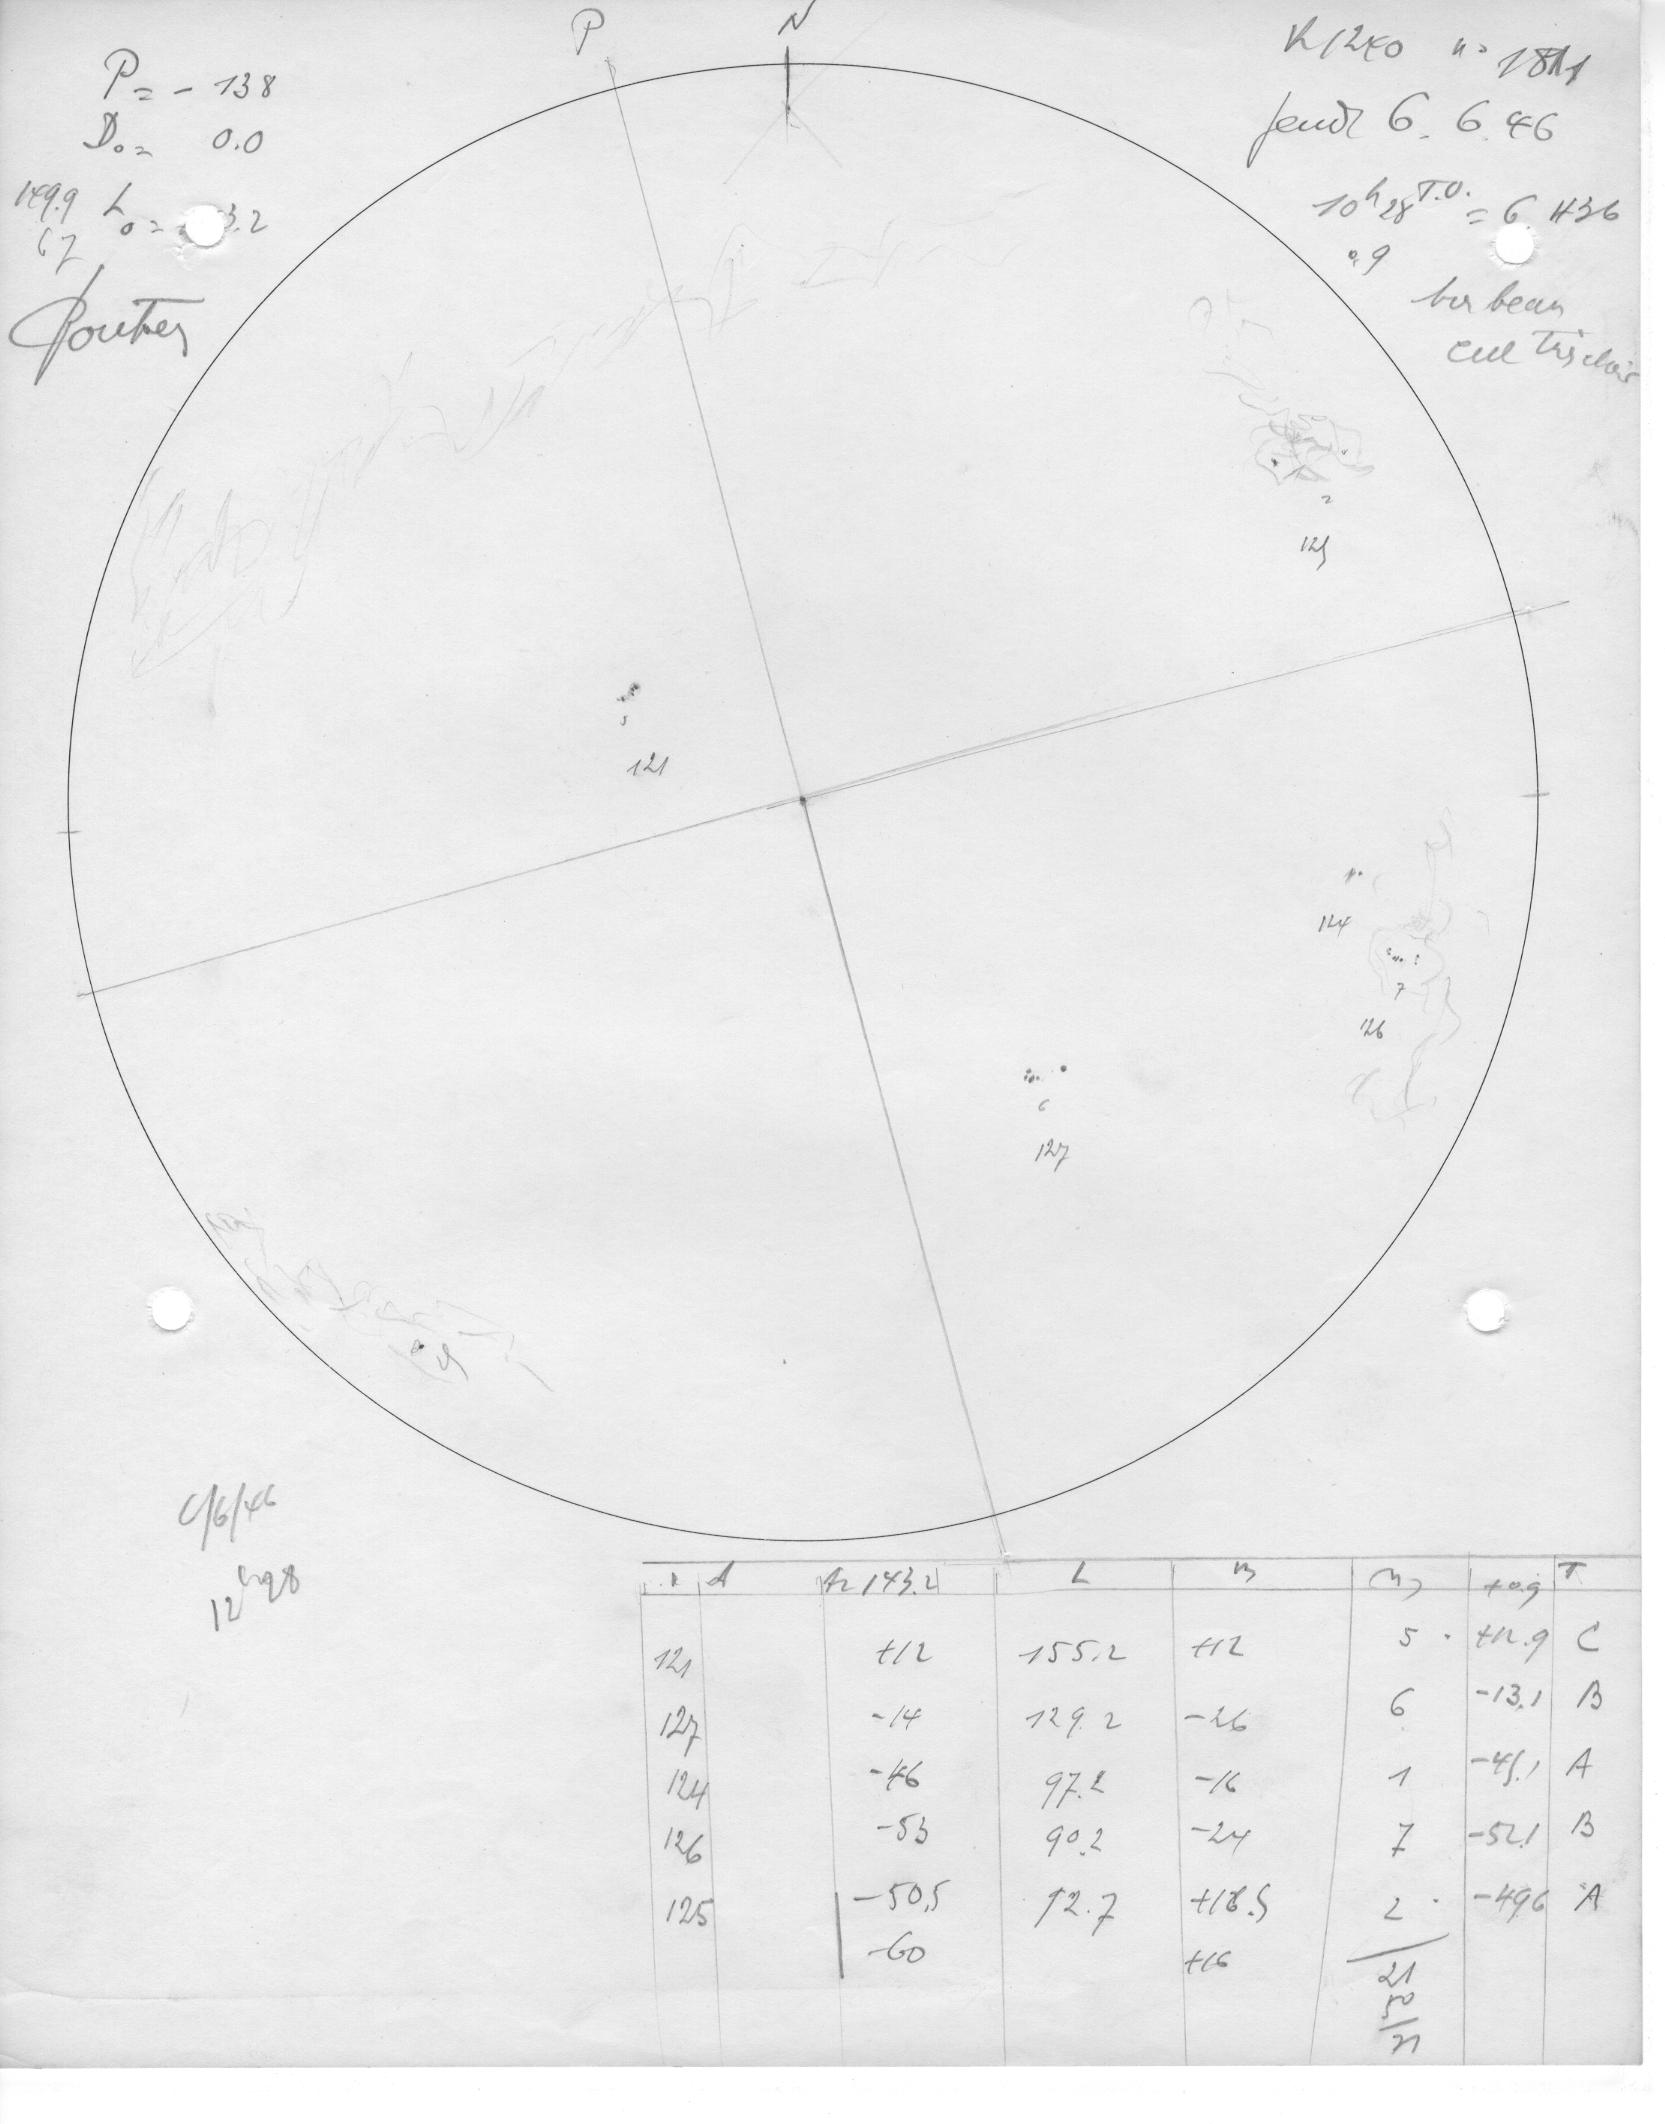 P N
P = - 138
D₀ = 0.0
149.9 L₀ = 3.2
67
R 1240 n° 1811
jeudi 6. 6. 46
10 h 28 T.U. = 6 H36
0.9
ciel
125
2
121
5
124
126
7
127
6
6/6/46
12h28
A2 143.2 L B +0.9 T
121 +12 155.2 +12 5 +12.9 C
127 -14 129.2 -26 6 -13.1 B
124 -46 97.2 -16 1 -45.1 A
126 -53 90.2 -24 7 -52.1 B
125 -50,5 2.7 +18.5 2 -49.6 A
-60 +16
21
50
71